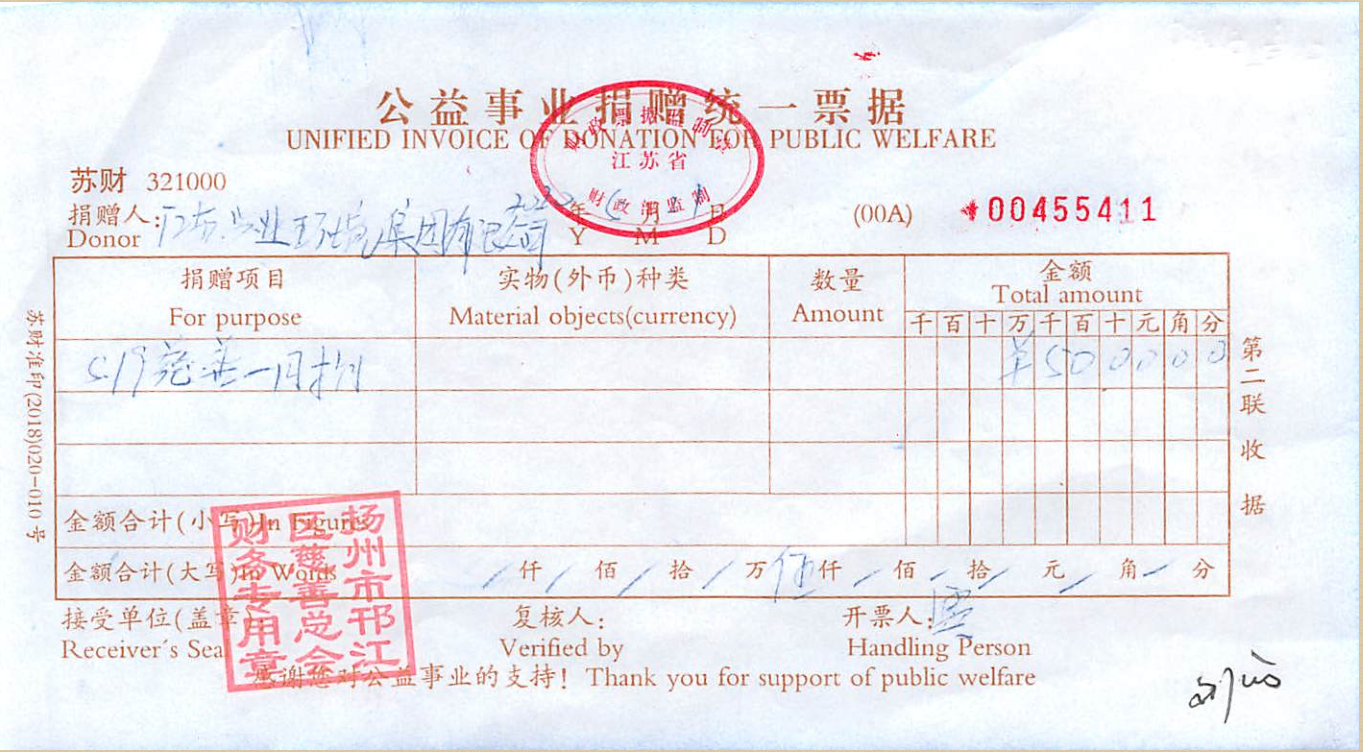 公益事业捐赠统一票据
UNIFIED INVOICE OF DONATION FOR PUBLIC WELFARE
江苏省
财政部监制
苏财 321000
捐赠人: 江苏兴业环境集团有限公司 年 月 日 (00A) 00455411
Donor Y M D
捐赠项目 实物(外币)种类 数量 金额
For purpose Material objects(currency) Amount Total amount
千 百 十 万 千 百 十 元 角 分
5.19慈善一日捐 ¥500000
金额合计(小写)In Figures
金额合计(大写)In Words 仟 佰 拾 万 伍 仟 佰 拾 元 角 分
接受单位(盖章): 复核人: 开票人:
Receiver's Seal Verified by Handling Person
感谢您对公益事业的支持! Thank you for support of public welfare
扬州市邗江区慈善总会财务专用章
苏财准印(2018)020-010号
第二联收据